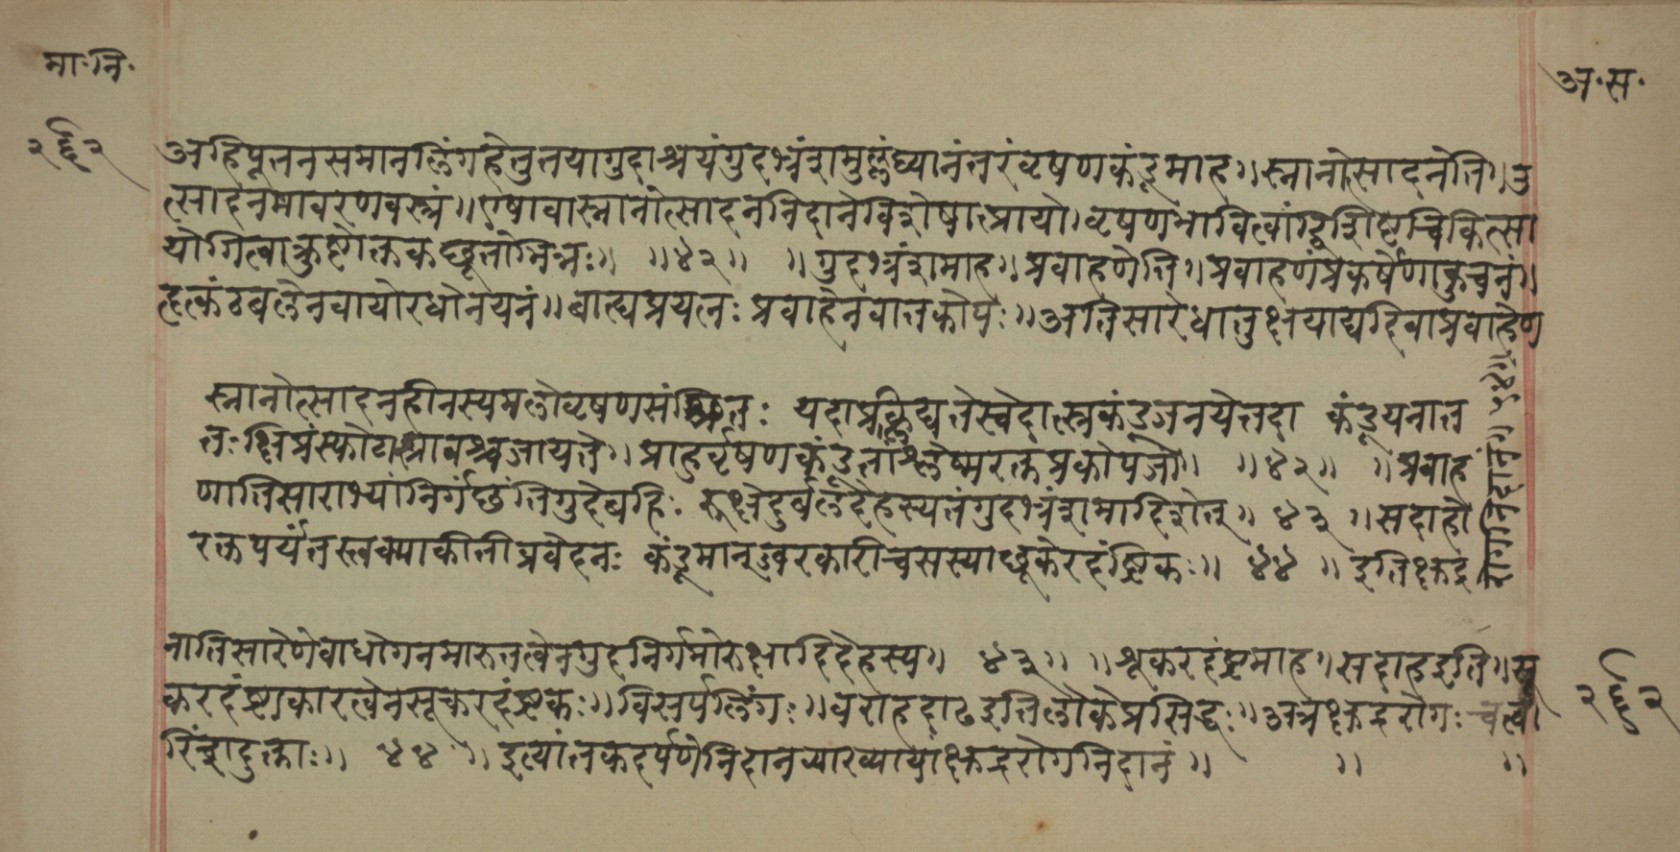 मा॰नि॰
अ॰स॰
२६२
अहिपूतनसमानलिंगहेतुतयागुदाश्रयंगुदभ्रंशमुल्लंघ्यानंतरंवृषणकंडूमाह॥स्नानोत्सादनेति॥उ
त्सादनमावरणवस्त्रं॥एषावास्नानोत्सादननिदानविशेषात्प्रायोवृषणभावित्वाद्विशिष्टचिकित्सा
योगित्वात्कुष्टोक्तकछूतोभिन्नः॥ ॥४२॥ ॥गुदभ्रंशमाह॥प्रवाहणेति॥प्रवाहणंप्रकर्षेणाकुचनं॥
हत्कंठबलेनवायोरधोनयनं॥बाह्यप्रयत्नः प्रवाहेनवातकोपः॥अतिसारेधातुक्षयाद्यदिवाप्रवाहेण
स्नानोत्सादनहीनस्यमलोवृषणसंश्रितः यदाप्रक्लिद्यतेस्वेदात्सकंडूजनयेत्तदा कंडूयनात्त
तःक्षिप्रंस्फोटास्रावश्चजायते॥प्राहुर्वृषणकंडूतांश्लेष्मरक्तप्रकोपजां॥ ॥४२॥ ॥प्रवाह
णातिसाराभ्यांनिर्गछंतिगुदंबहिः रूक्षदुर्बलदेहस्यतंगुदभ्रंशमादिशेत्॥ ४३ ॥सदाहो
रक्तपर्यंतस्त्वक्पाकीतीव्रवेदनः कंडूमान्ज्वरकारीचसस्याछूकरदंष्ट्रिकः॥ ४४ ॥इतिक्षुद्र
रोगनिदानं॥५४॥
नातिसारेणेवाधोगतमारुतत्वेनगुदनिर्गमोरुक्षादिदेहस्य॥ ४३॥ ॥शूकरदंष्ट्रमाह॥सदाहइति॥सू
करदंष्ट्राकारत्वेनसूकरदंष्ट्रकः॥विसर्पलिंगः॥वराहदाढइतिलोकेप्रसिद्धः॥अत्रक्षुद्ररोगः चत्वा
रिंशदुक्ताः॥ ४४ ॥इत्यांतकदर्पणेनिदानव्याख्यायांक्षुद्ररोगनिदानं॥ ॥ ॥
२६२